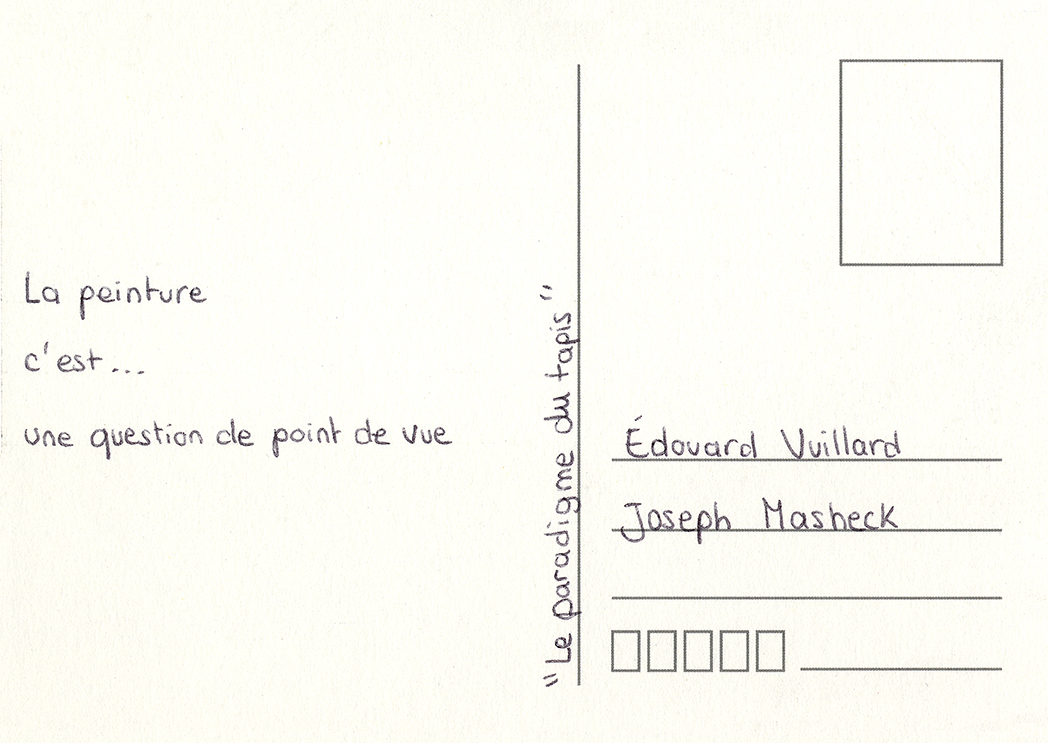 La peinture
c'est...
une question de point de vue
"Le paradigme du tapis"
Édouard Vuillard
Joseph Masheck